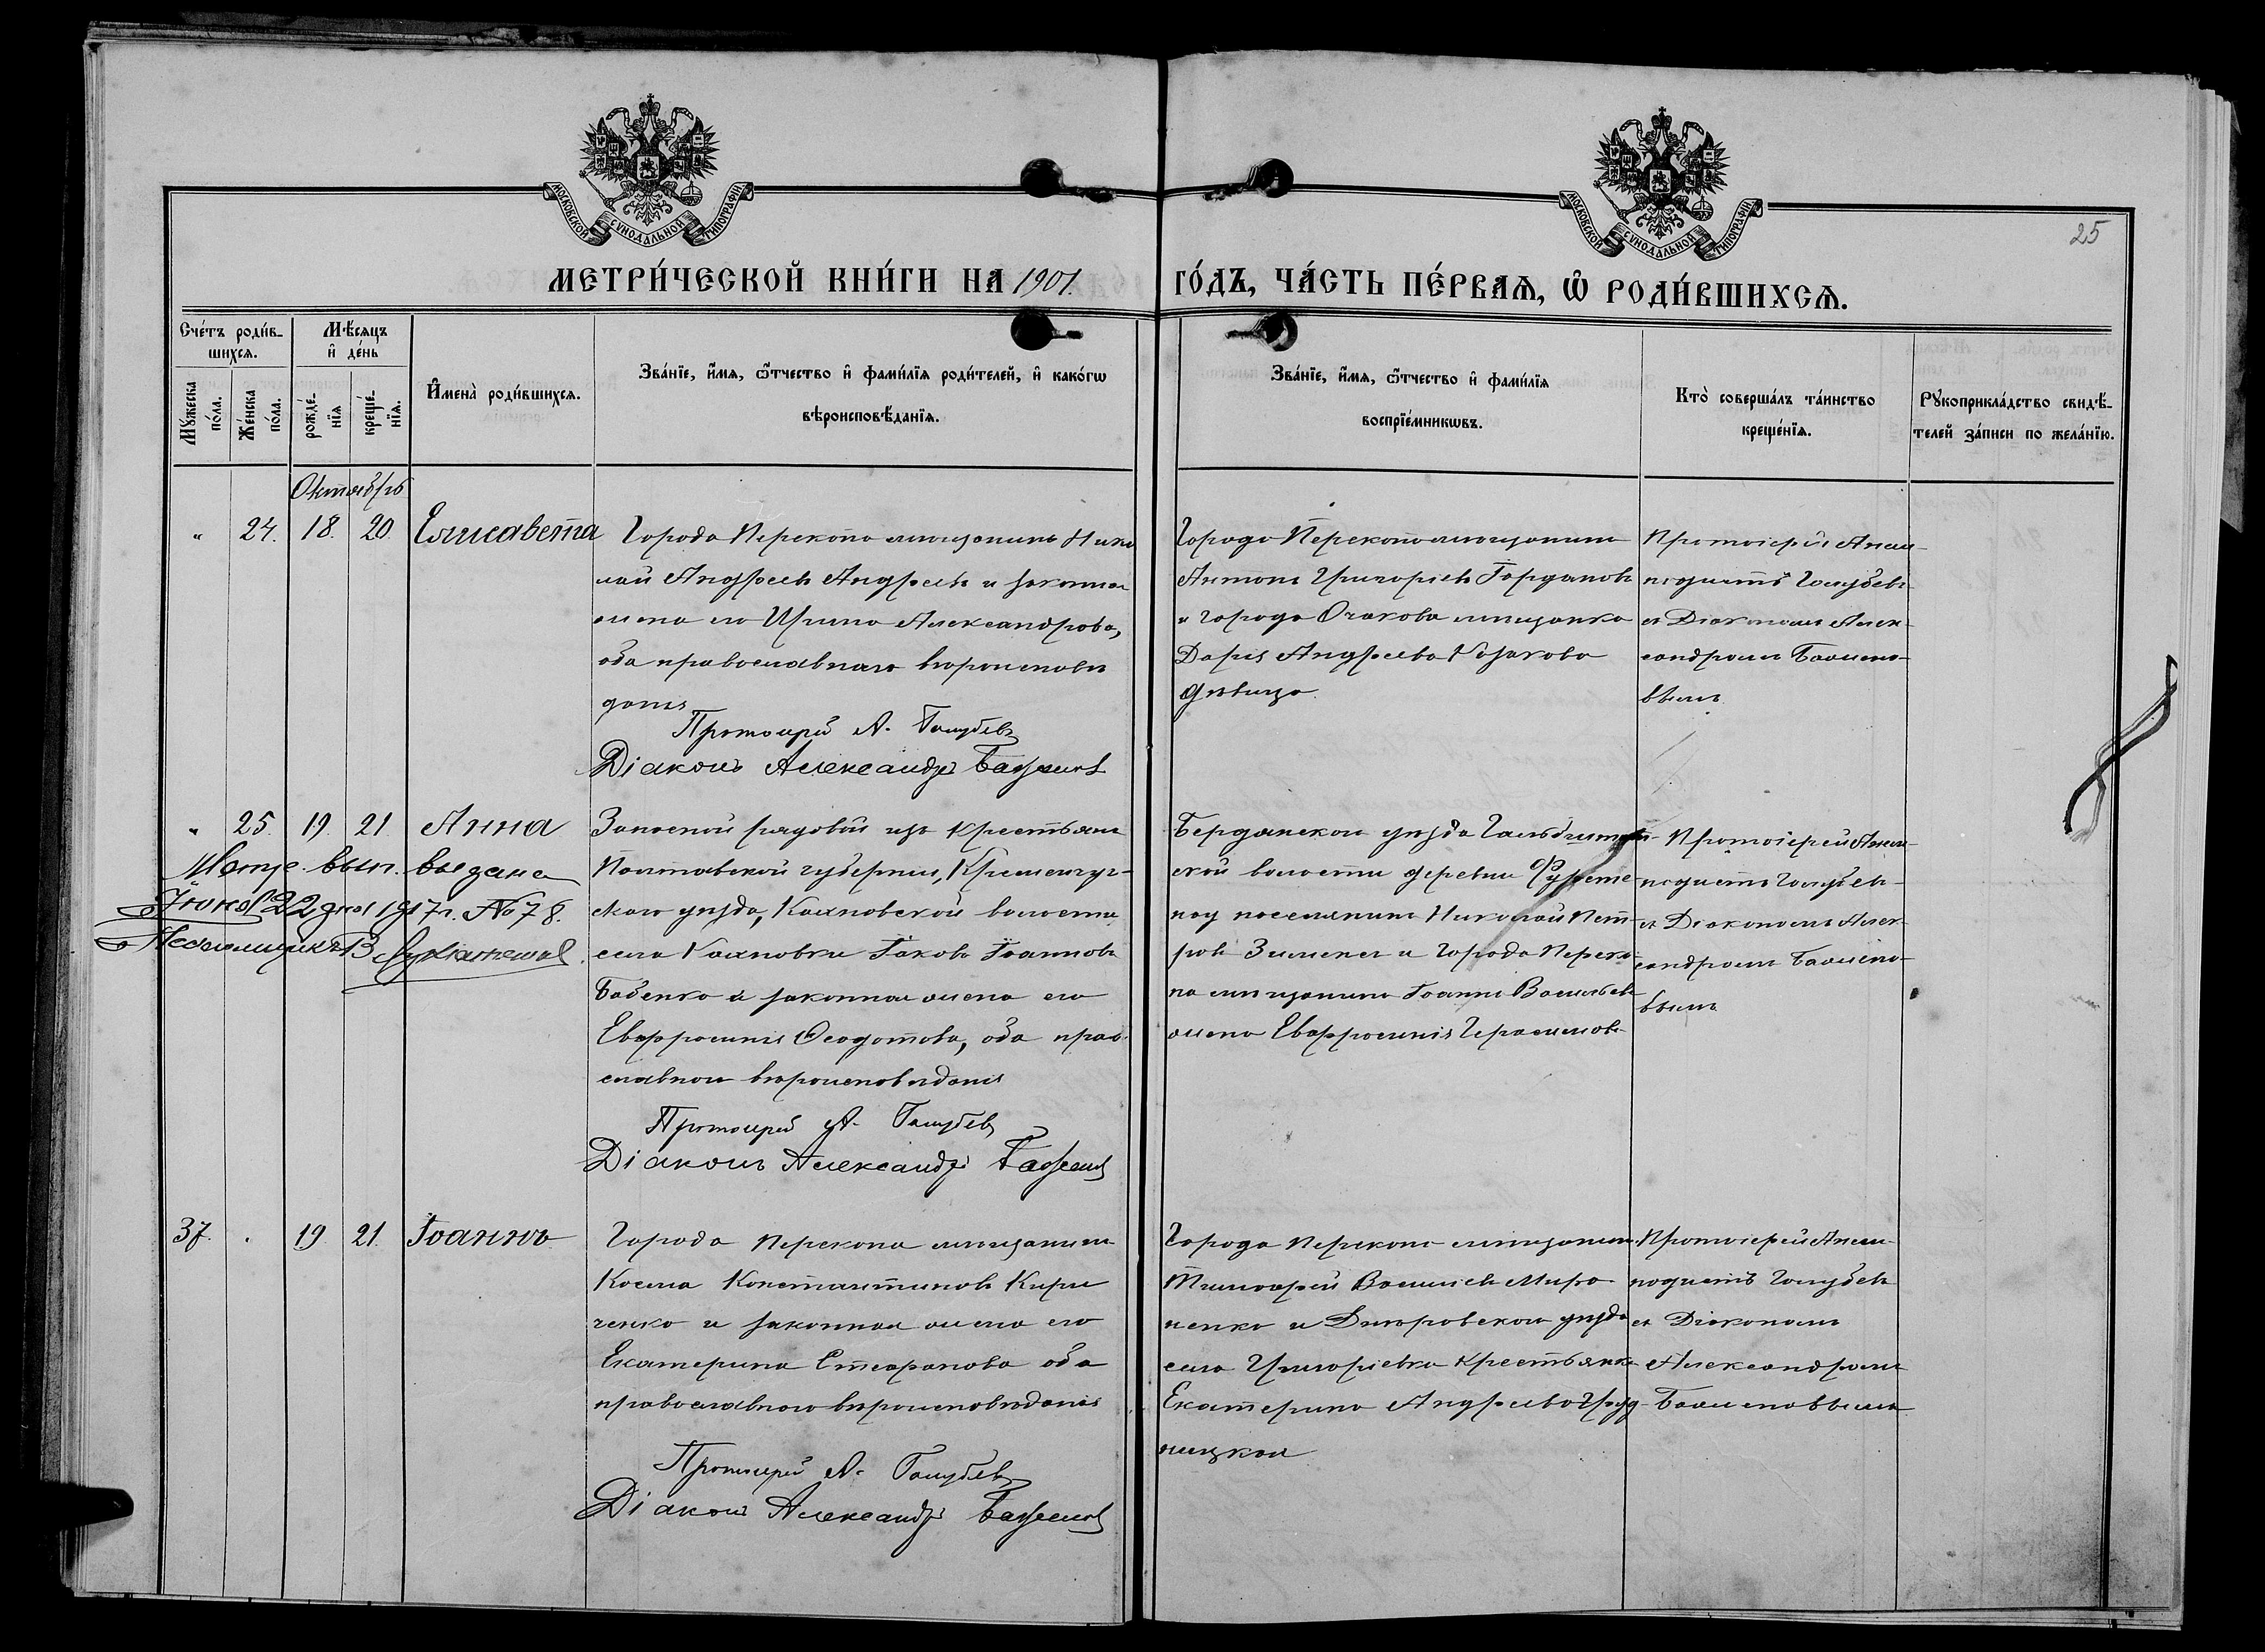 МОСКОВСКОЙ СУНОДАЛЬНОЙ ТИПОГРАФІИ
МОСКОВСКОЙ СУНОДАЛЬНОЙ ТИПОГРАФІИ
25
МЕТРИ́ЧЕСКОЙ КНИ́ГИ НА 1901.
ГО́ДЪ, ЧА́СТЬ ПЕ́РВАѦ, Ѽ РОДИ́ВШИХСѦ.
Сче́тъ роди́в-
шихсѧ.
Мꙋжеска по́ла.
Же́нска по́ла.
Мѣ́сѧцъ
и҆ де́нь
рожде́-
нїѧ
креще́-
нїѧ.
И҆мена̀ роди́вшихсѧ.
Зва́нїе, и҆́мѧ, ѻ҆́тчество и҆ фами́лїѧ роди́телей, и҆ како́гѡ
вѣроисповѣ́данїѧ.
Зва́нїе, и҆́мѧ, ѻ҆́тчество и҆ фами́лїѧ
воспрїе́мникѡвъ.
Кто̀ соверша́лъ та́инство
креще́нїѧ.
Рꙋкоприкла́дство свидѣ́-
телей за́писи по жела́нїю.
Октябрь
" 24. 18. 20. Елисавета
Города Перекопа мѣщанинъ Нико
лай Андреевъ Андреевъ и законная
жена его Ирина Александрова,
оба православнаго вѣроисповѣ
данія
Протоиерей А. Голубевъ
Діаконъ Александръ Баженовъ
Города Перекопа мѣщанинъ
Антонъ Григорьевъ
и города Очакова мѣщанка
Дарія Андреева Козакова
дѣвица.
Протоіерей Анем-
подистъ Голубевъ
съ Діакономъ Алек-
сандромъ Бажено-
вымъ
" 25. 19. 21. Анна
Метр. вып. выдана
22 дня 1917 г. № 78.
Запасной рядовой изъ крестьянъ
Полтавской губерніи, Кременчуг-
скаго уѣзда, Кахновской волости
села Кахновки Іаковъ Іоанновъ
Бабенко и законная жена его
Евфросинія Ѳеодотова, оба право-
славнаго вѣроисповѣданія
Протоиерей А. Голубевъ
Діаконъ Александръ Баженовъ
Бердянскаго уѣзда
ской волости деревни
поселянинъ Николай Пет-
ровъ и города Переко-
па мѣщанина Іоанна Васильева
жена Евфросинія Герасимова
Протоіерей Анем-
подистъ Голубевъ
съ Діакономъ Алек-
сандромъ Бажено-
вымъ
37. " 19 21. Іоаннъ
Города Перекопа мѣщанинъ
Косма Константиновъ Кири
ченко и законная жена его
Екатерина Стефанова оба
православнаго вѣроисповѣданія
Протоиерей А. Голубевъ
Діаконъ Александръ Баженовъ
Города Перекопа мѣщанинъ
Тимофей Васильевъ Миро
ненко и Днѣпровскаго уѣзда
села Григорьевки крестьянка
Екатерина Андреева
Протоіерей Анем-
подистъ Голубевъ
съ Діакономъ
Александромъ
Баженовымъ